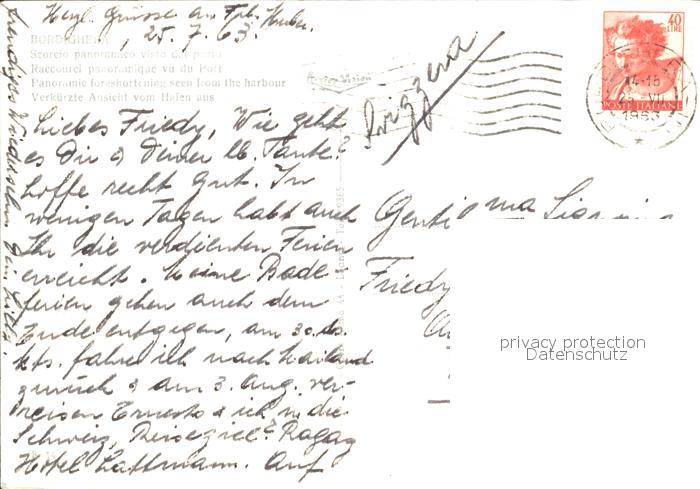 Herzl. Grüsse an Fam. Huber.
, 25.7.63.
BORDIGHERA
Scorcio panoramico visto dal porto
Raccourci panoramique vu du Port
Panoramic foreshortening seen from the harbour
Verkürzte Ansicht vom Hafen aus
40
LIRE
POSTE ITALIANE
14-15
25.VII
1963
Svizzera
Liebes Friedy, Wie geht
es Dir & Deiner lb. Tante?
hoffe recht gut. In
wenigen Tagen habt auch
Ihr die verdienten Ferien
erreicht. Meine Bade-
ferien gehen auch dem
Ende entgegen, am 30. ds.
Mts. fahre ich nach Mailand
zurück & am 3. Aug. ver-
reisen Ernesto & ich in die
Schweiz, Reiseziel: Ragaz
Hotel Lattmann. Auf
freudiges Wiedersehn
Gentil ma Signorina
Friedy
privacy protection
Datenschutz